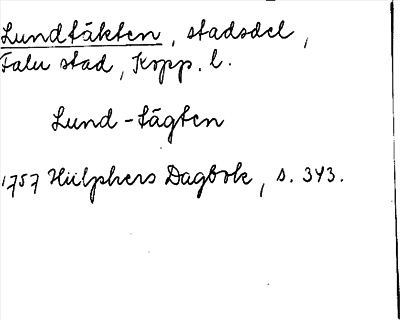 Lundtäkten, stadsdel,
Falu stad, Kopp. l.
Lund-tägten
1757 Hülphers Dagbok, s. 343.